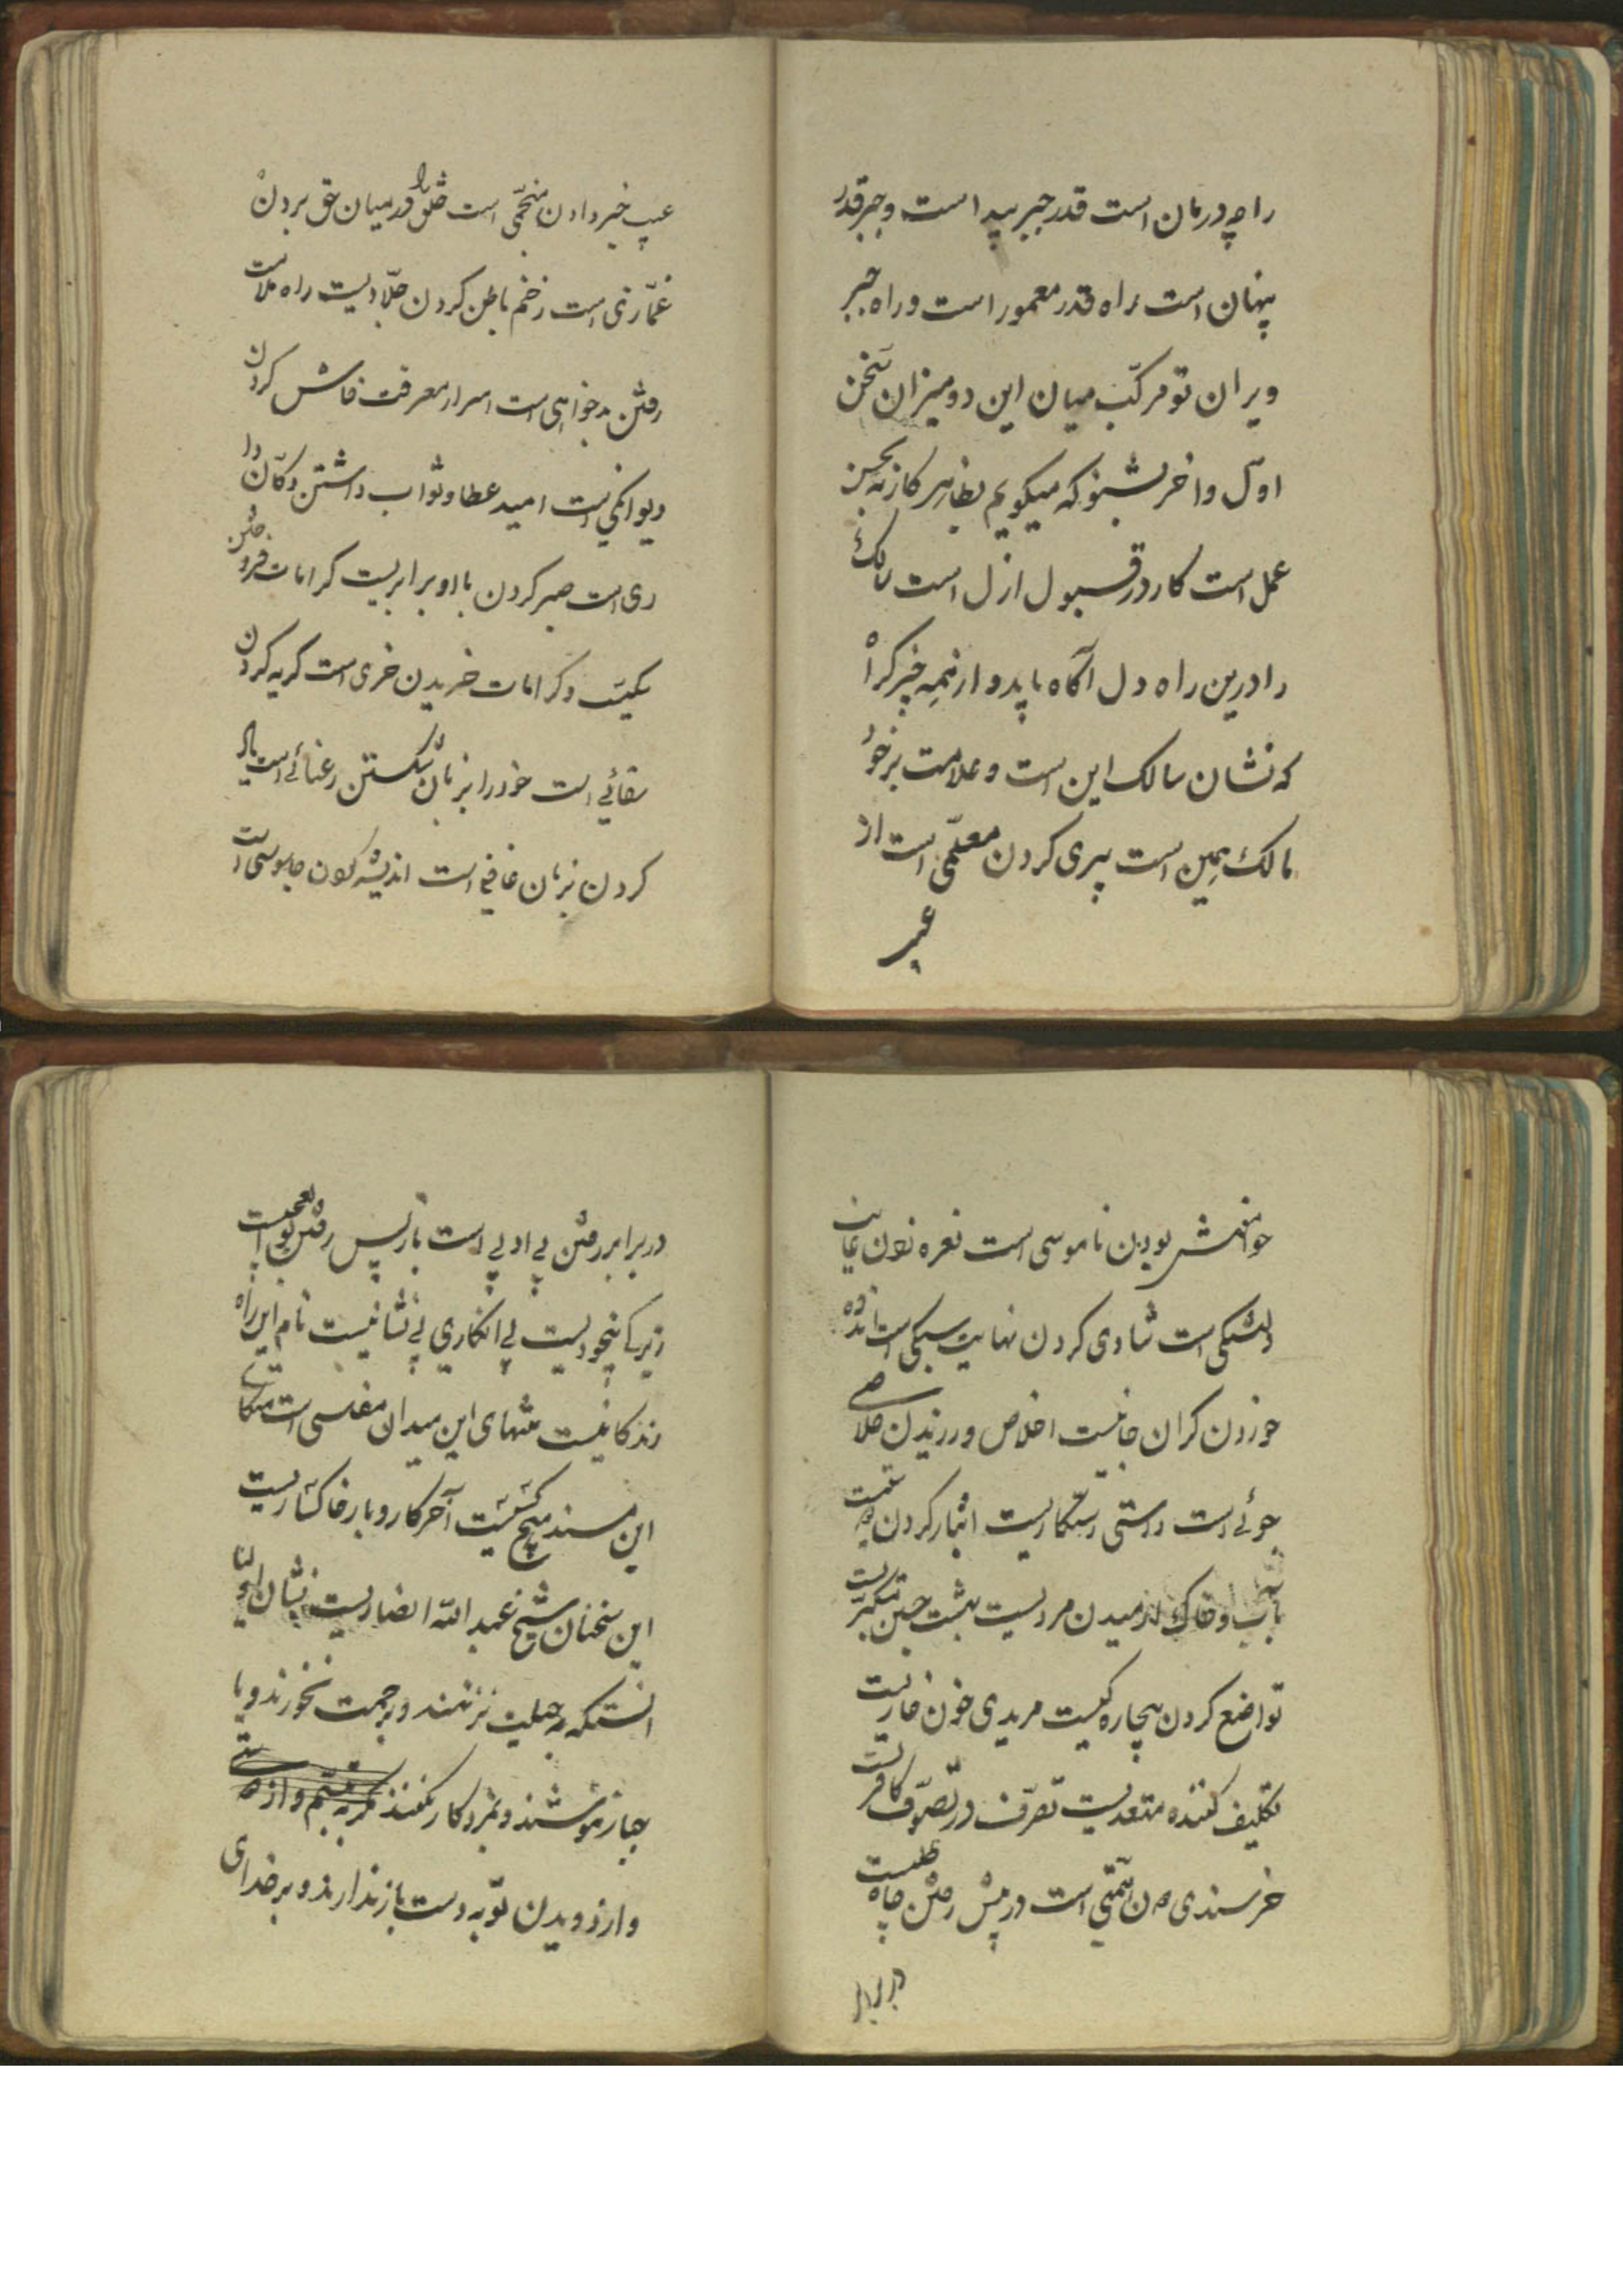 را چه درمان است قدر جبر پیدا است و جبر قدر
پنهان است راه قدر معمور است و راه جبر
ویران تو مرکب میان این دو میزان سخن
اول و آخر بشنو که میگویم بظاهر کار نه بحسن
عمل است کار در قبول ازل است سالک
را درین راه دل آگاه باید و از نیمه چیز کراه
که نشان سالک این است و علامت برخو
مالک همین است پیری کردن معلمی است از
عیب
عیب خبر دادن منجمی است خلق را قدر میان حق بردن
غمازی است زخم باطن کردن جلادیست راه ملامت
رفتن بدخواهی است اسرار معرفت فاش کردن
دیوانگی است امید عطا و ثواب داشتن دکان دا
ری است صبر کردن با او برابریست کرامات فروختن
سکیست و کرامات خریدن خری است گریه کردن
سقائی است خود را بزبان شکستن رعنائی است
کردن بزبان است اندیشه کردن جاسوسی است
خوامنش بودن ناموسی است نعره زدن
است شادی کردن نهایت سبکی است اندوه
خوردن گران جانیست اخلاص ورزیدن خلاصی
جوئی است راستی رستگاریست ایثار کردن
بآب و خاک آرمیدن مردیست بهشت جستن
تواضع کردن بیچارگیست مریدی خون خاریست
تکلیف کننده متعدیست تصرف در تصوف کافریست
خرسندی دون همتی است در پیش رفتن جاه طلبیست
در برابر
در برابر رفتن بی ادبی است باز پس رفتن بوالعجبیست
زیرکی بیخودیست بی انکاری بی نشانیست نام این راه
زندگانیست منتهای این میدان مفلسی است متکای
این مسند هیچ کسیست آخر کار و بار خاکساریست
این سخنان شیخ عبد الله انصاریست نشان اولیا
آنستکه بر جهلیت نزنند و رحمت نخورند و با
بیازموشند و بمزد کار نکنند و از
و از دویدن توبه دست باز ندارند و بر خدای